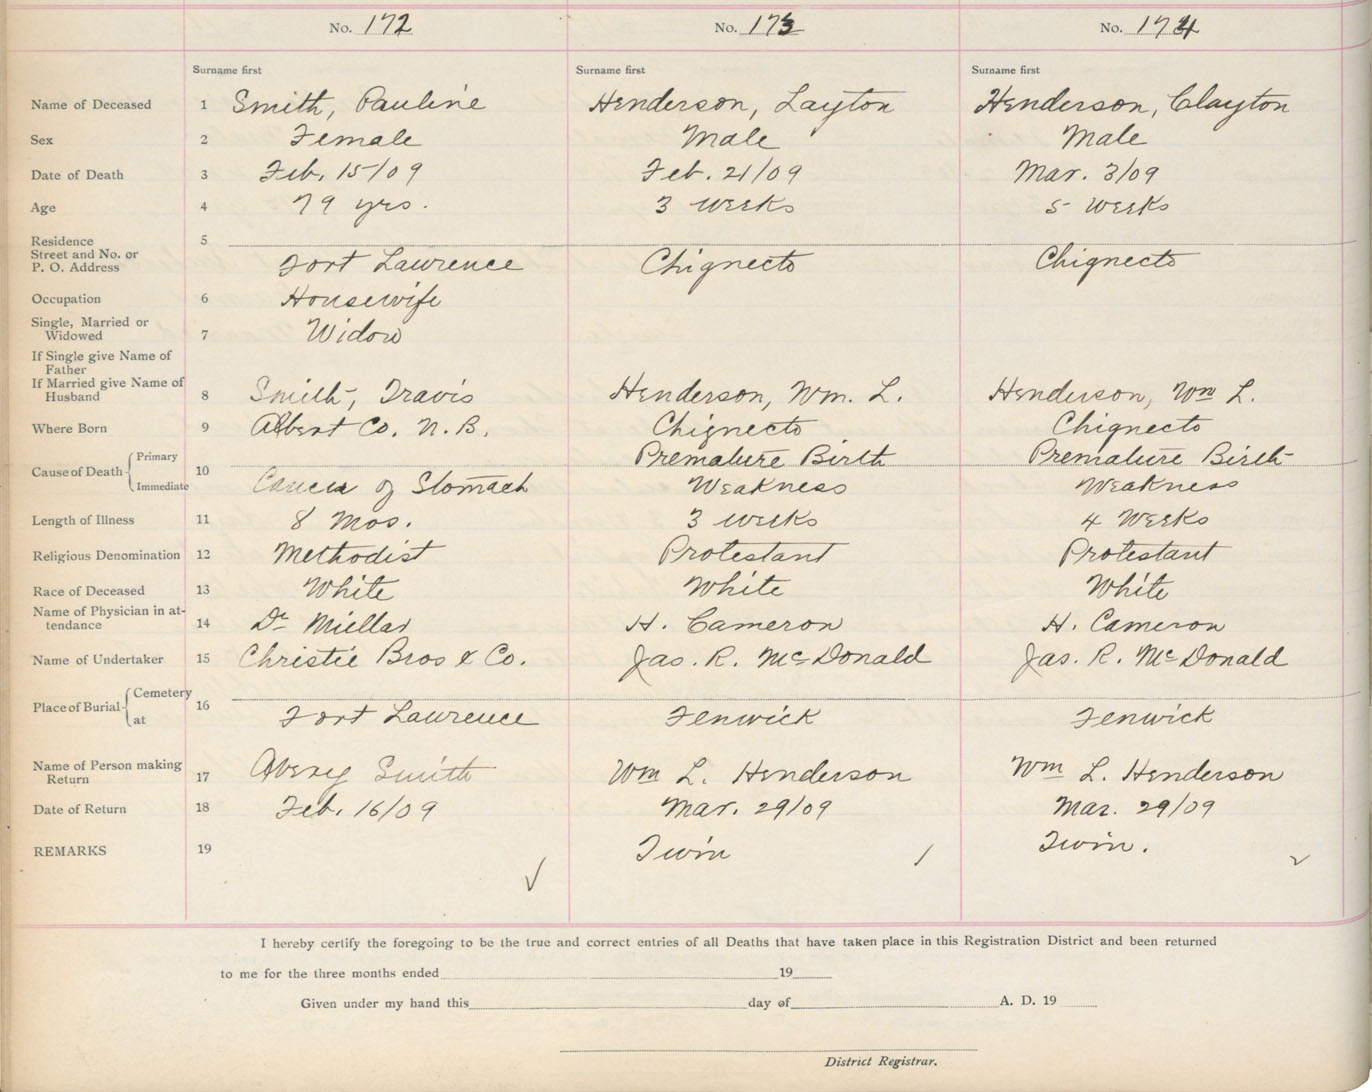 No. 172 No. 173 No. 174
Surname first Surname first Surname first
Name of Deceased 1 Smith, Pauline Henderson, Layton Henderson, Clayton
Sex 2 Female Male Male
Date of Death 3 Feb. 15/09 Feb. 21/09 Mar. 3/09
Age 4 79 yrs. 3 weeks 5 weeks
Residence 5
Street and No. or
P. O. Address Fort Lawrence Chignecto Chignecto
Occupation 6 Housewife
Single, Married or
Widowed 7 Widow
If Single give Name of
Father
If Married give Name of
Husband 8 Smith, Travis Henderson, Wm. L. Henderson, Wm L.
Where Born 9 Albert Co. N.B. Chignecto Chignecto
Cause of Death Primary 10 Premature Birth Premature Birth
Immediate Cancer of Stomach Weakness Weakness
Length of Illness 11 8 mos. 3 weeks 4 weeks
Religious Denomination 12 Methodist Protestant Protestant
Race of Deceased 13 White White White
Name of Physician in at-
tendance 14 Dr Millar H. Cameron H. Cameron
Name of Undertaker 15 Christie Bros & Co. Jas. R. McDonald Jas. R. McDonald
Place of Burial Cemetery 16
at Fort Lawrence Fenwick Fenwick
Name of Person making
Return 17 Avery Smith Wm L. Henderson Wm L. Henderson
Date of Return 18 Feb. 16/09 Mar. 29/09 Mar. 29/09
REMARKS 19 Twin Twin.
I hereby certify the foregoing to be the true and correct entries of all Deaths that have taken place in this Registration District and been returned
to me for the three months ended 19
Given under my hand this day of A. D. 19
District Registrar.